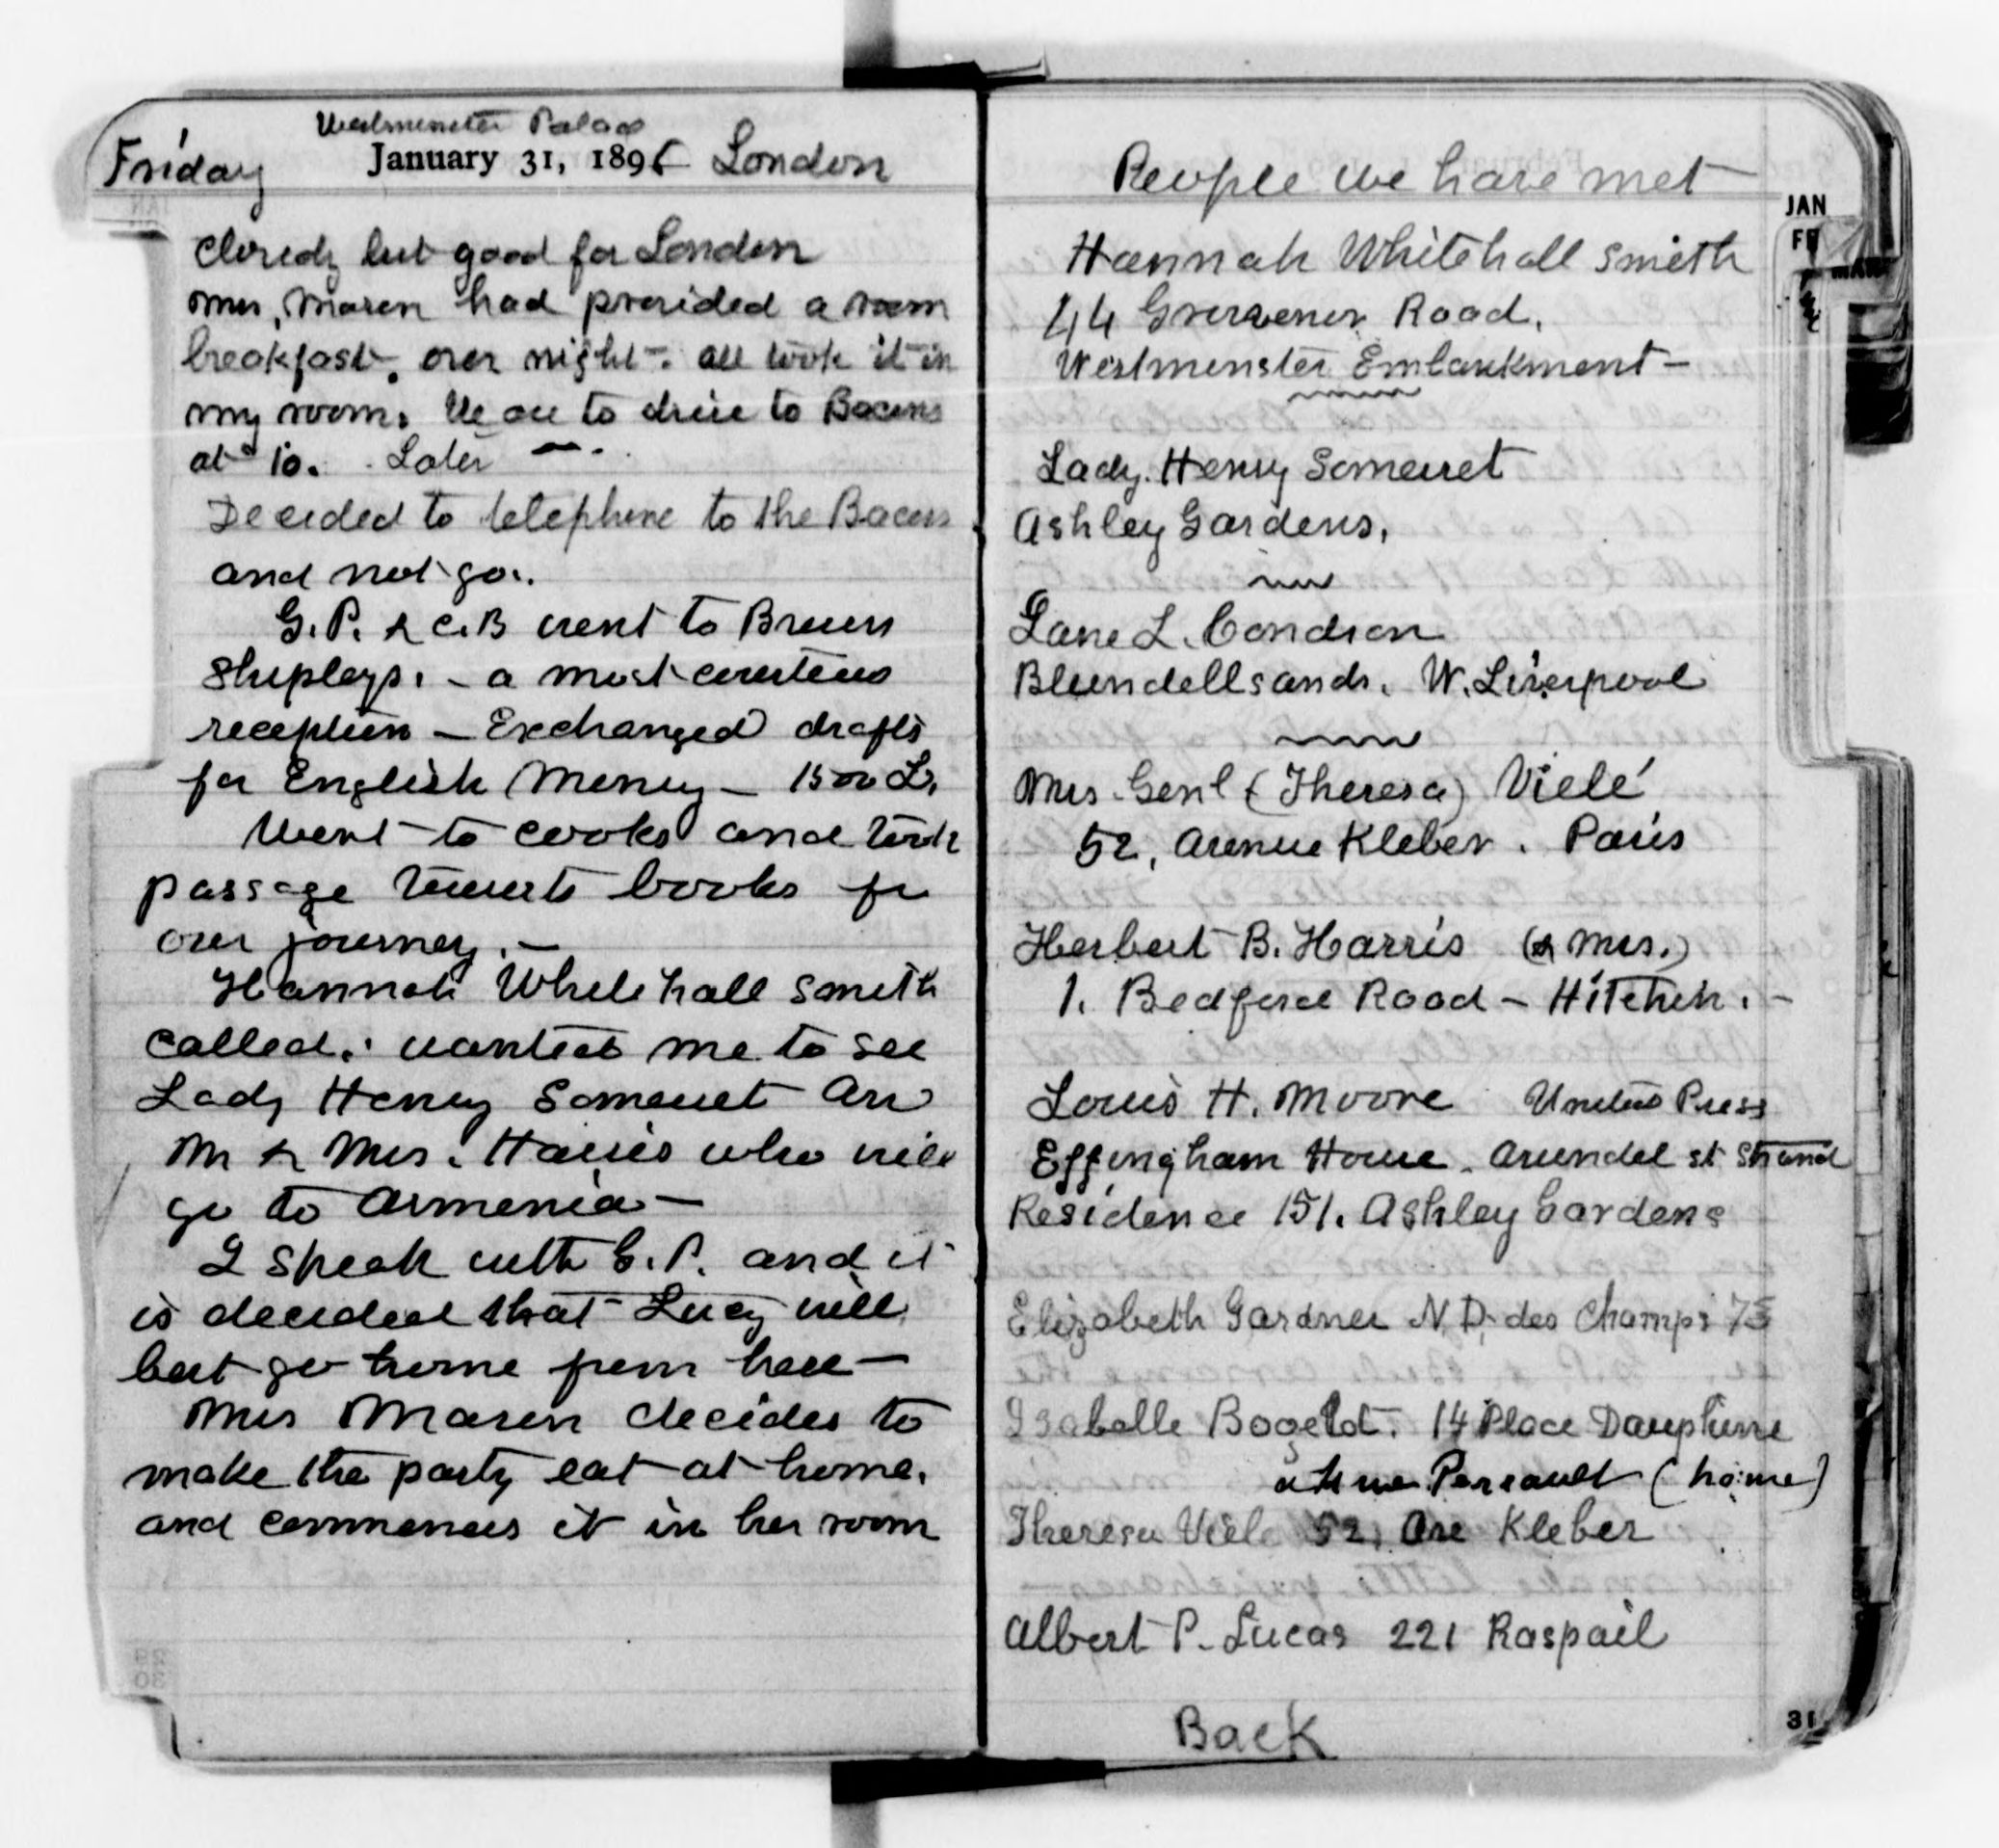 Westminster Palace
Friday January 31, 1896 London
Cloudy but good for London
Mrs. Mason had provided a room
breakfast, over night. all took it in
my room. We are to drive to Bacons
at 10. Later —.
Decided to telephone to the Bacons
and not go.
G.P. & C.B went to Brown
Shipleys. - a most courteous
reception — Exchanged drafts
for English Money — 1500 L.
Went to Cooks and took
passage tourists books for
our journey. —
Hannah Whitehall Smith
called. wanted me to see
Lady Henry Somerset and
Mr & Mrs. Harris who will
go to Armenia —
I speak with G.P. and it
is decided that Lucy will
best go home from here —
Mrs Mason decides to
make the party eat at home.
and commences it in her room
People we have met
Hannah Whitehall Smith
44 Grosvenor Road.
Westminster Embankment —
Lady. Henry Somerset
Ashley Gardens,
Jane L. Condron
Blundellsands. W. Liverpool
Mrs Genl (Theresa) Vielé
52, Avenue Kleber. Paris
Herbert B. Harris (& Mrs.)
1. Bedford Road — Hitchin. —
Louis H. Moore United Press
Effingham House. Arundel st Strand
Residence 151. Ashley Gardens
Elizabeth Gardner N.D. des Champs 73
Isabelle Bogelot. 14 Place Dauphine
rue Perrault (home)
Theresa Viele 52, Ave Kleber
Albert P. Lucas 221 Raspail
Back
JAN
31